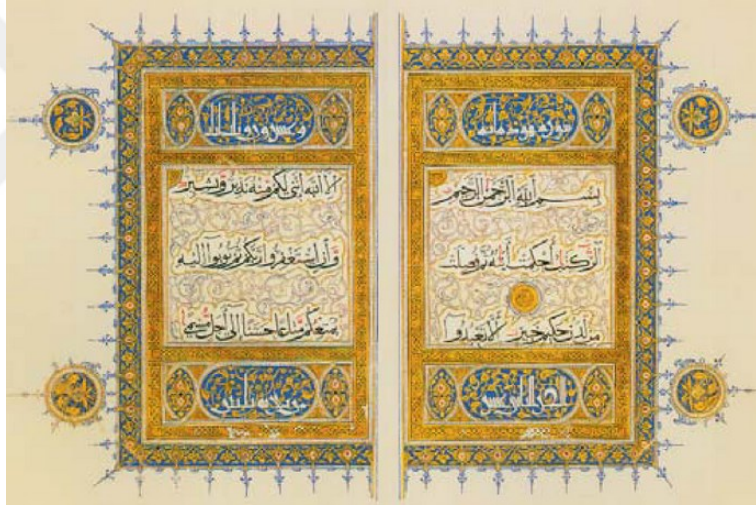 سورة هود مائة
بسم الله الرحمن الرحيم
الر كتب أحكمت آيته ثم فصلت
من لدن حكيم خبير ألا تعبدوا
إلا الله إنني لكم منه نذير وبشير
وأن استغفروا ربكم ثم توبوا إليه
يمتعكم متاعا حسنا إلى أجل مسمى